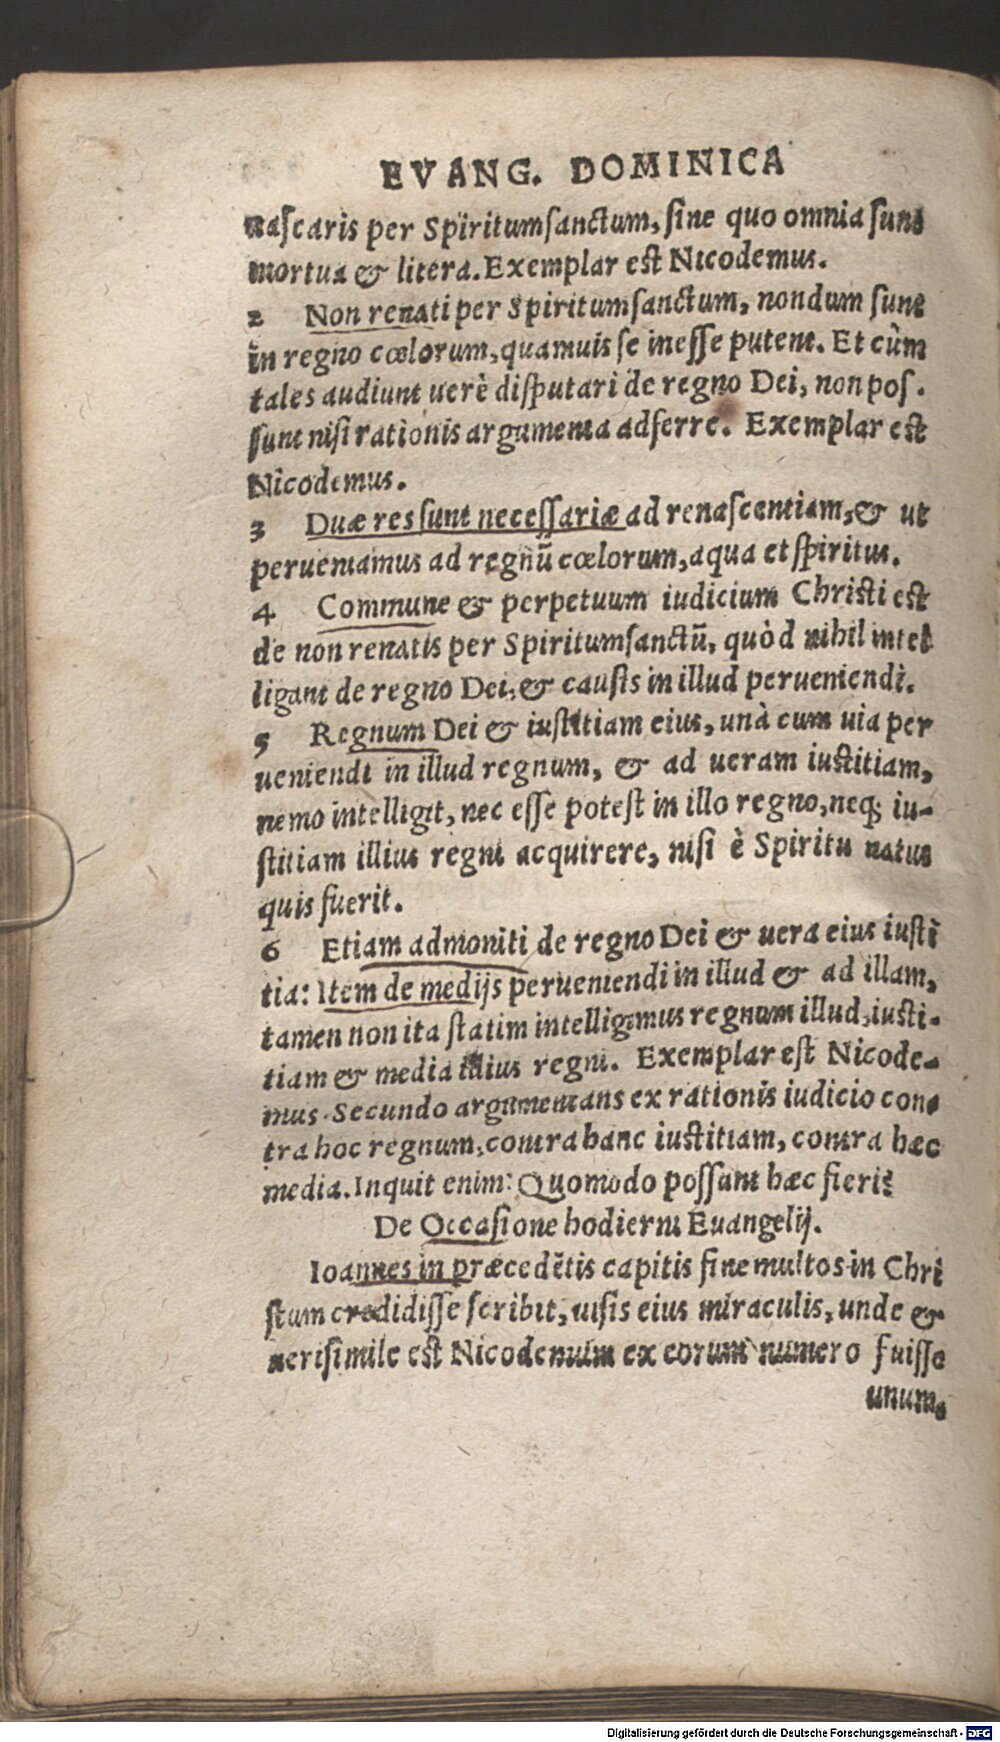 EVANG. DOMINICA
naſcaris per Spiritumſanctum, ſine quo omnia ſunt
mortua & litera. Exemplar eſt Nicodemus.
2 Non renati per Spiritumſanctum, nondum ſunt
in regno cœlorum, quamuis ſe ineſſe putent. Et cùm
tales audiunt uerè diſputari de regno Dei, non poſ-
ſunt niſi rationis argumenta adferre. Exemplar eſt
Nicodemus.
3 Duæ res ſunt neceſſariæ ad renaſcentiam, & ut
perueniamus ad regnũ cœlorum, aqua et ſpiritus.
4 Commune & perpetuum iudicium Chriſti eſt
de non renatis per Spiritumſanctũ, quòd nihil intel
ligant de regno Dei, & cauſis in illud perueniendi.
5 Regnum Dei & iuſtitiam eius, unà cum uia per
ueniendi in illud regnum, & ad ueram iuſtitiam,
nemo intelligit, nec eſſe poteſt in illo regno, neq; iu-
ſtitiam illius regni acquirere, niſi è Spiritu natus
quis fuerit.
6 Etiam admoniti de regno Dei & uera eius iuſti
tia: Item de medijs perueniendi in illud & ad illam,
tamen non ita ſtatim intelligimus regnum illud, iuſti-
tiam & media illius regni. Exemplar eſt Nicode-
mus. Secundo argumentans ex rationis iudicio con-
tra hoc regnum, contra hanc iuſtitiam, contra hæc
media. Inquit enim: Quomodo poſſunt hæc fieri?
De Occaſione hodierni Euangelij.
Ioannes in præcedẽtis capitis fine multos in Chri
ſtum credidiſſe ſcribit, uiſis eius miraculis, unde &
ueriſimile eſt Nicodemum ex eorum numero fuiſſe
unum,
Digitalisierung gefördert durch die Deutsche Forschungsgemeinschaft - DFG